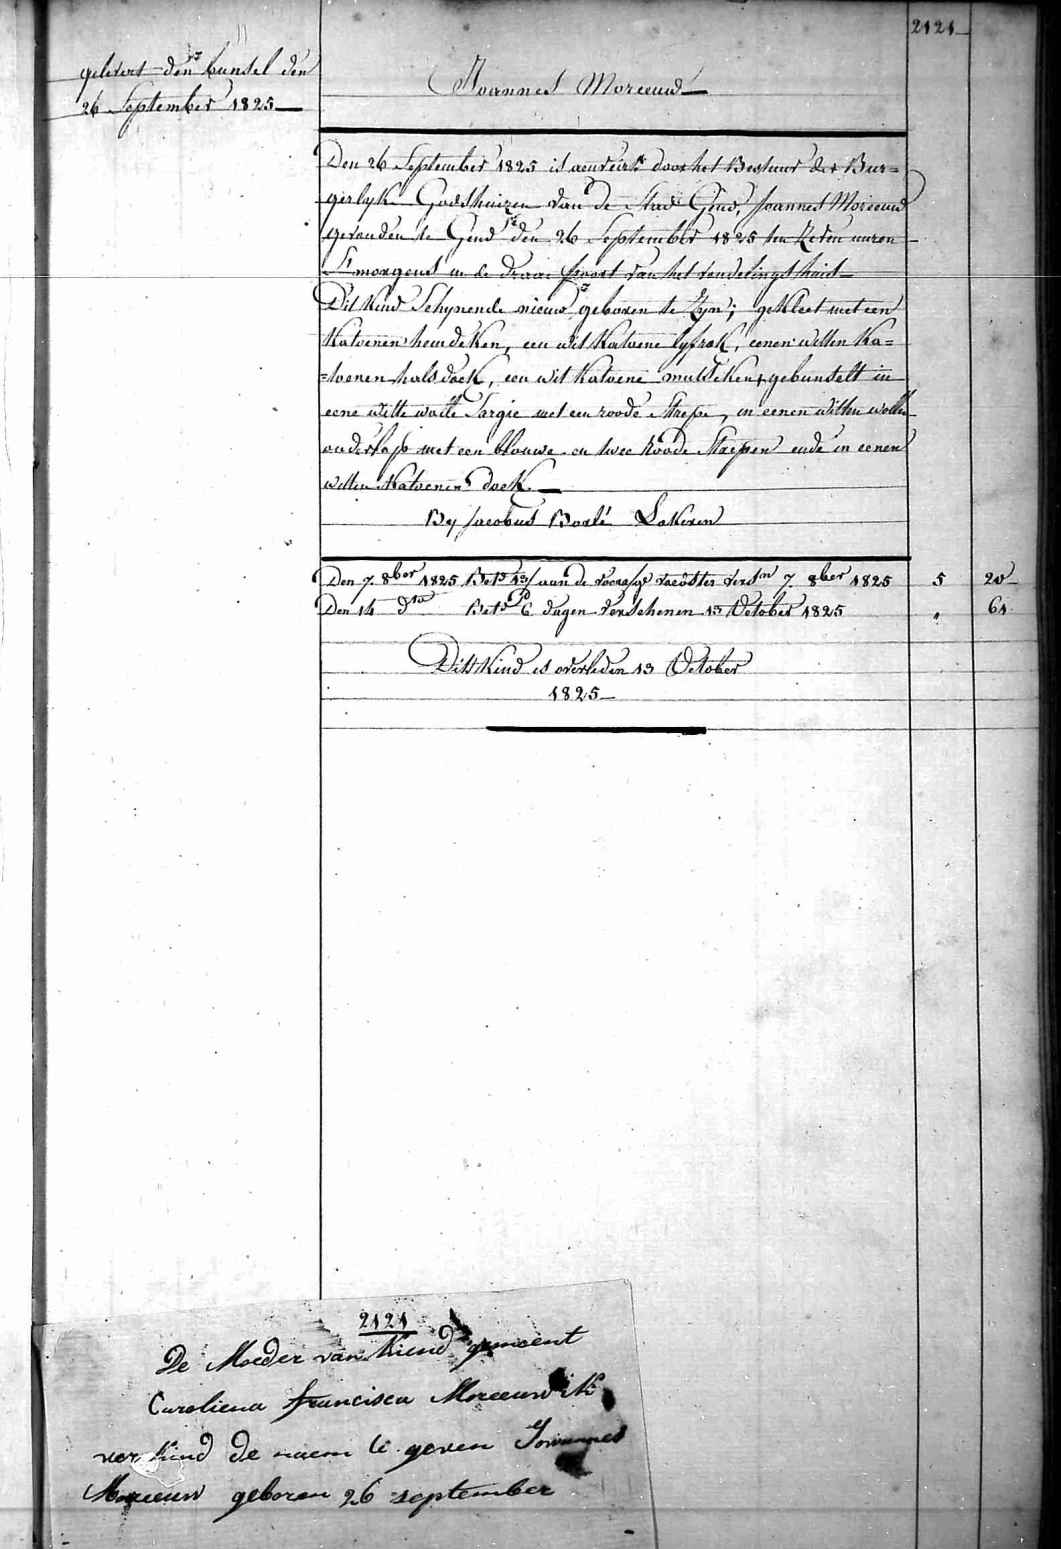 2121
gelevert den bunsel den
26 September 1825
Joannes Moreeuw
Den 26 September 1825 is aenveirt door het Bestuur der Bur=
gerlyke Godshuizen van de Stad Gend, Joannes Moreeuw
gevonden te Gend den 26 September 1825 ten zeven uuren
s'morgens in de draai van het vondelingshuis
Dit Kind Schynende nieuw geboren te Zyn; gekleet met een
Katoenen hemdeken, een wit Katoene lyfrok, eenen witten Ka=
=toenen halsdoek, een wit Katoene mutseken, gebunselt in
eene witte wolle Sargie met een roode Streepe, in eenen witten wollen
onderlap met een blouwe en twee Roode Streepen ende in eenen
witten Katoenen doek.
By Jacobus Boelé Lokeren
Den 7. 8ber 1825 Bet 13/ aan de voedster versn 7. 8ber 1825 5 20
Den 14 dto Bet 6 dagen verschenen 13 October 1825 " 61
Dit Kind is overleden 13 October
1825
2121
De Moeder van Kiend genoemt
Caroliena francisca Moreeuw
ver Kind de naem te geven Jowannes
Moreeuw geboren 26 september